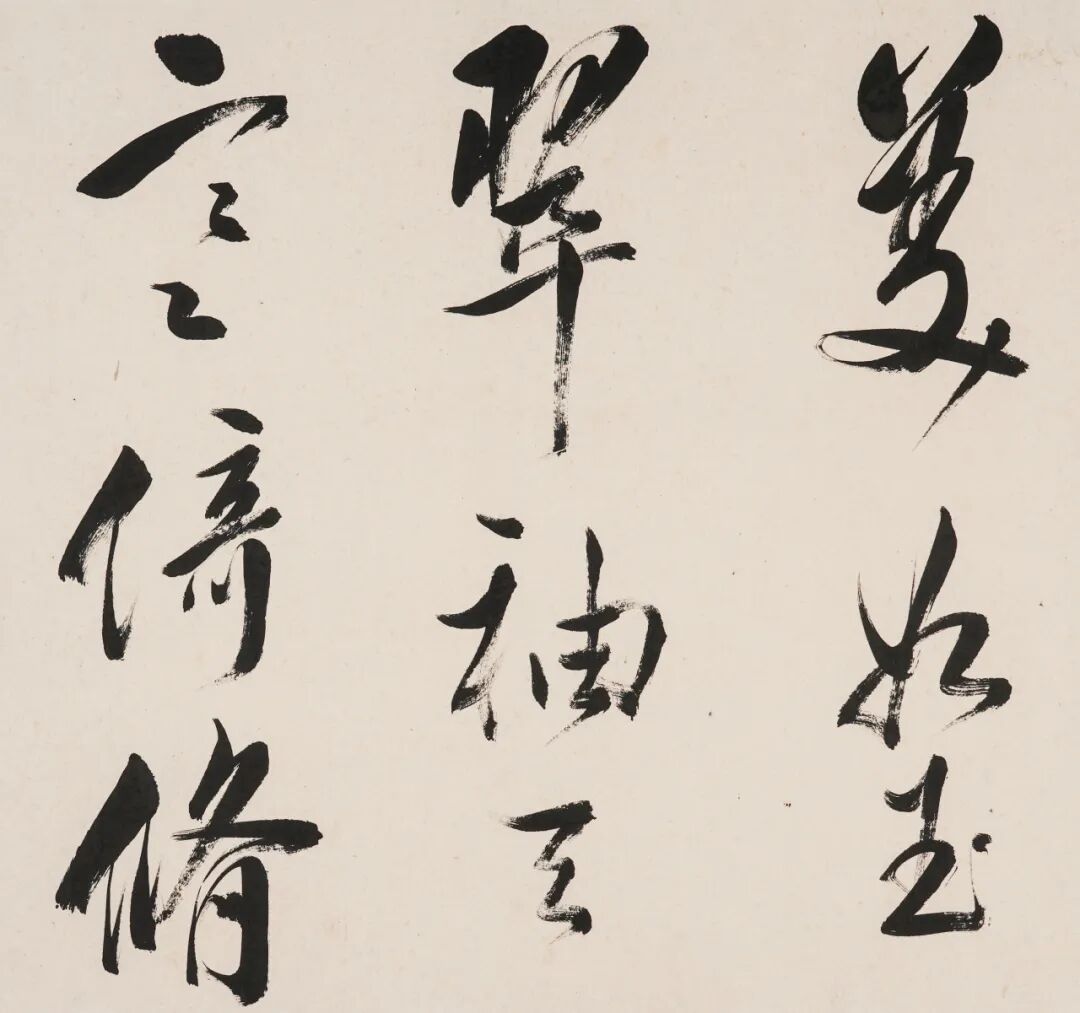 美如玉
翠袖天
寒倚脩